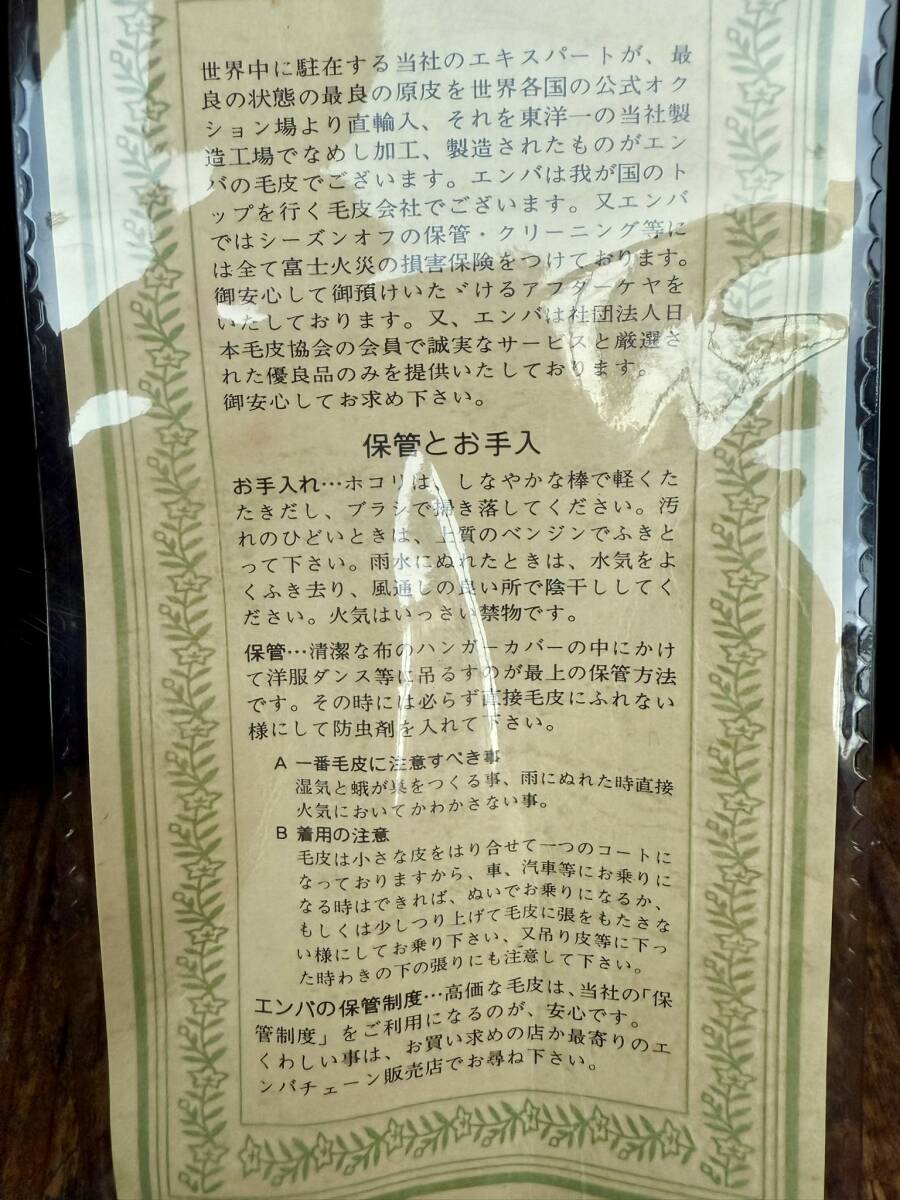 世界中に駐在する当社のエキスパートが、最
良の状態の最良の原皮を世界各国の公式オク
ション場より直輸入、それを東洋一の当社製
造工場でなめし加工、製造されたものがエン
バの毛皮でございます。エンバは我が国のト
ップを行く毛皮会社でございます。又エンバ
ではシーズンオフの保管・クリーニング等に
は全て富士火災の損害保険をつけております。
御安心して御預けいたゞけるアフターケヤを
いたしております。又、エンバは社団法人日
本毛皮協会の会員で誠実なサービスと厳選さ
れた優良品のみを提供いたしております。
御安心してお求め下さい。
保管とお手入
お手入れ…ホコリは、しなやかな棒で軽くた
たきだし、ブラシで掃き落してください。汚
れのひどいときは、上質のベンジンでふきと
って下さい。雨水にぬれたときは、水気をよ
くふき去り、風通しの良い所で陰干ししてく
ださい。火気はいっさい禁物です。
保管…清潔な布のハンガーカバーの中にかけ
て洋服ダンス等に吊るすのが最上の保管方法
です。その時には必らず直接毛皮にふれない
様にして防虫剤を入れて下さい。
A 一番毛皮に注意すべき事
湿気と蛾が巣をつくる事、雨にぬれた時直接
火気においてかわかさない事。
B 着用の注意
毛皮は小さな皮をはり合せて一つのコートに
なっておりますから、車、汽車等にお乗りに
なる時はできれば、ぬいでお乗りになるか、
もしくは少しつり上げて毛皮に張をもたさな
い様にしてお乗り下さい、又吊り皮等に下っ
た時わきの下の張りにも注意して下さい。
エンバの保管制度…高価な毛皮は、当社の「保
管制度」をご利用になるのが、安心です。
くわしい事は、お買い求めの店か最寄りのエ
ンバチェーン販売店でお尋ね下さい。